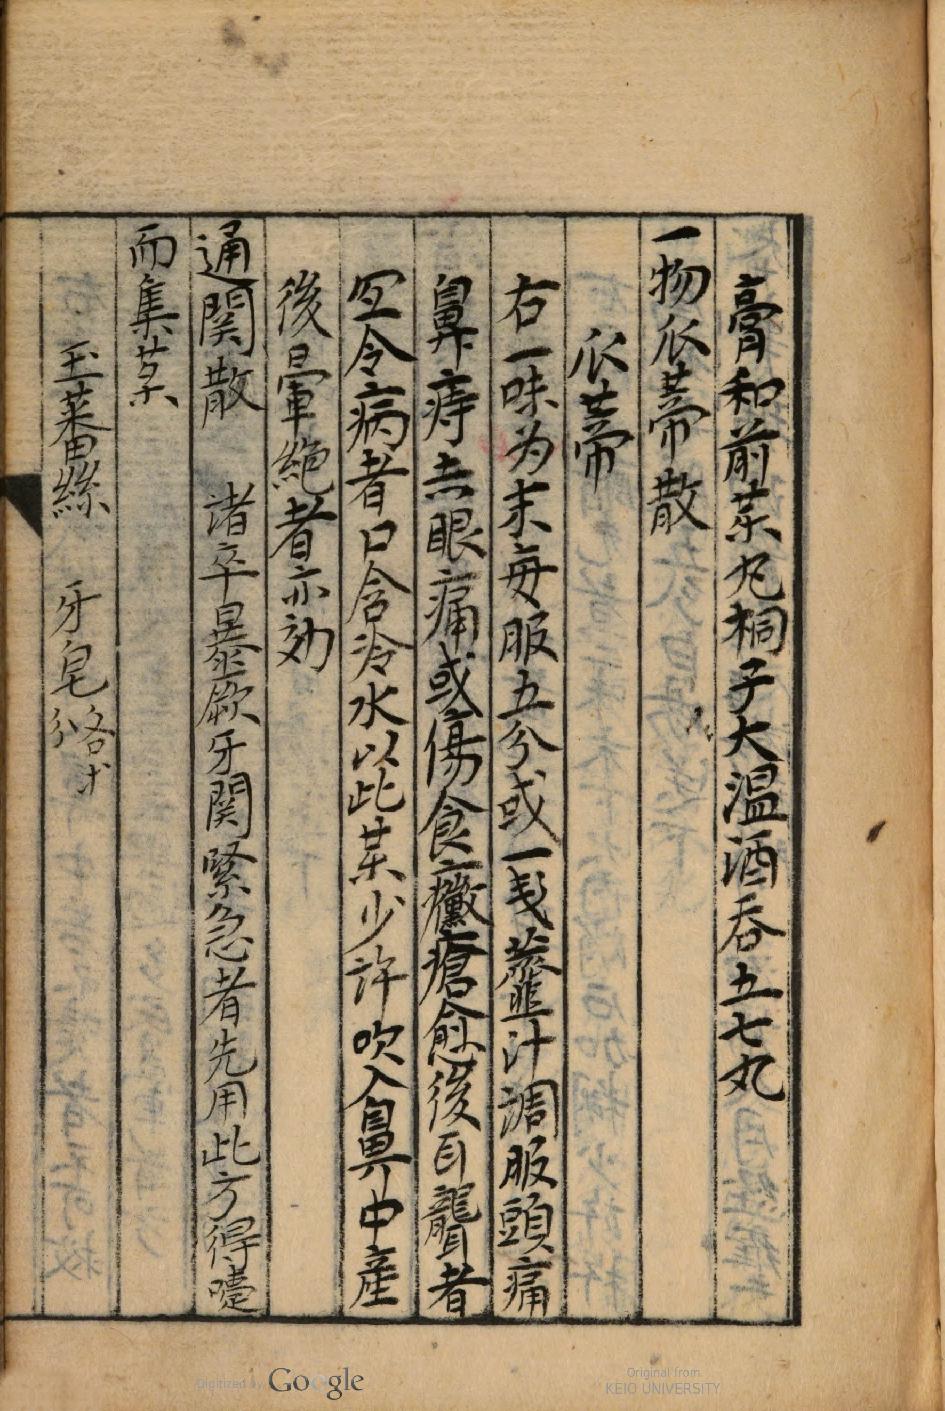 膏和前茱丸桐子大温酒吞五七丸
一物瓜蒂散
瓜蒂
右一味为末毎服五分或一戔虀汁調服頭痛
鼻痔赤眼痛或傷食癥瘡愈後耳聾者
空令病者口含冷水以此茱少許吹入鼻中産
後暈絶者亦効
通関散 諸卒暴厥牙関緊急者先用此方得嚏
而集茱
玉蕃絲 牙皂各才分
Digitized by Google
Original from
KEIO UNIVERSITY